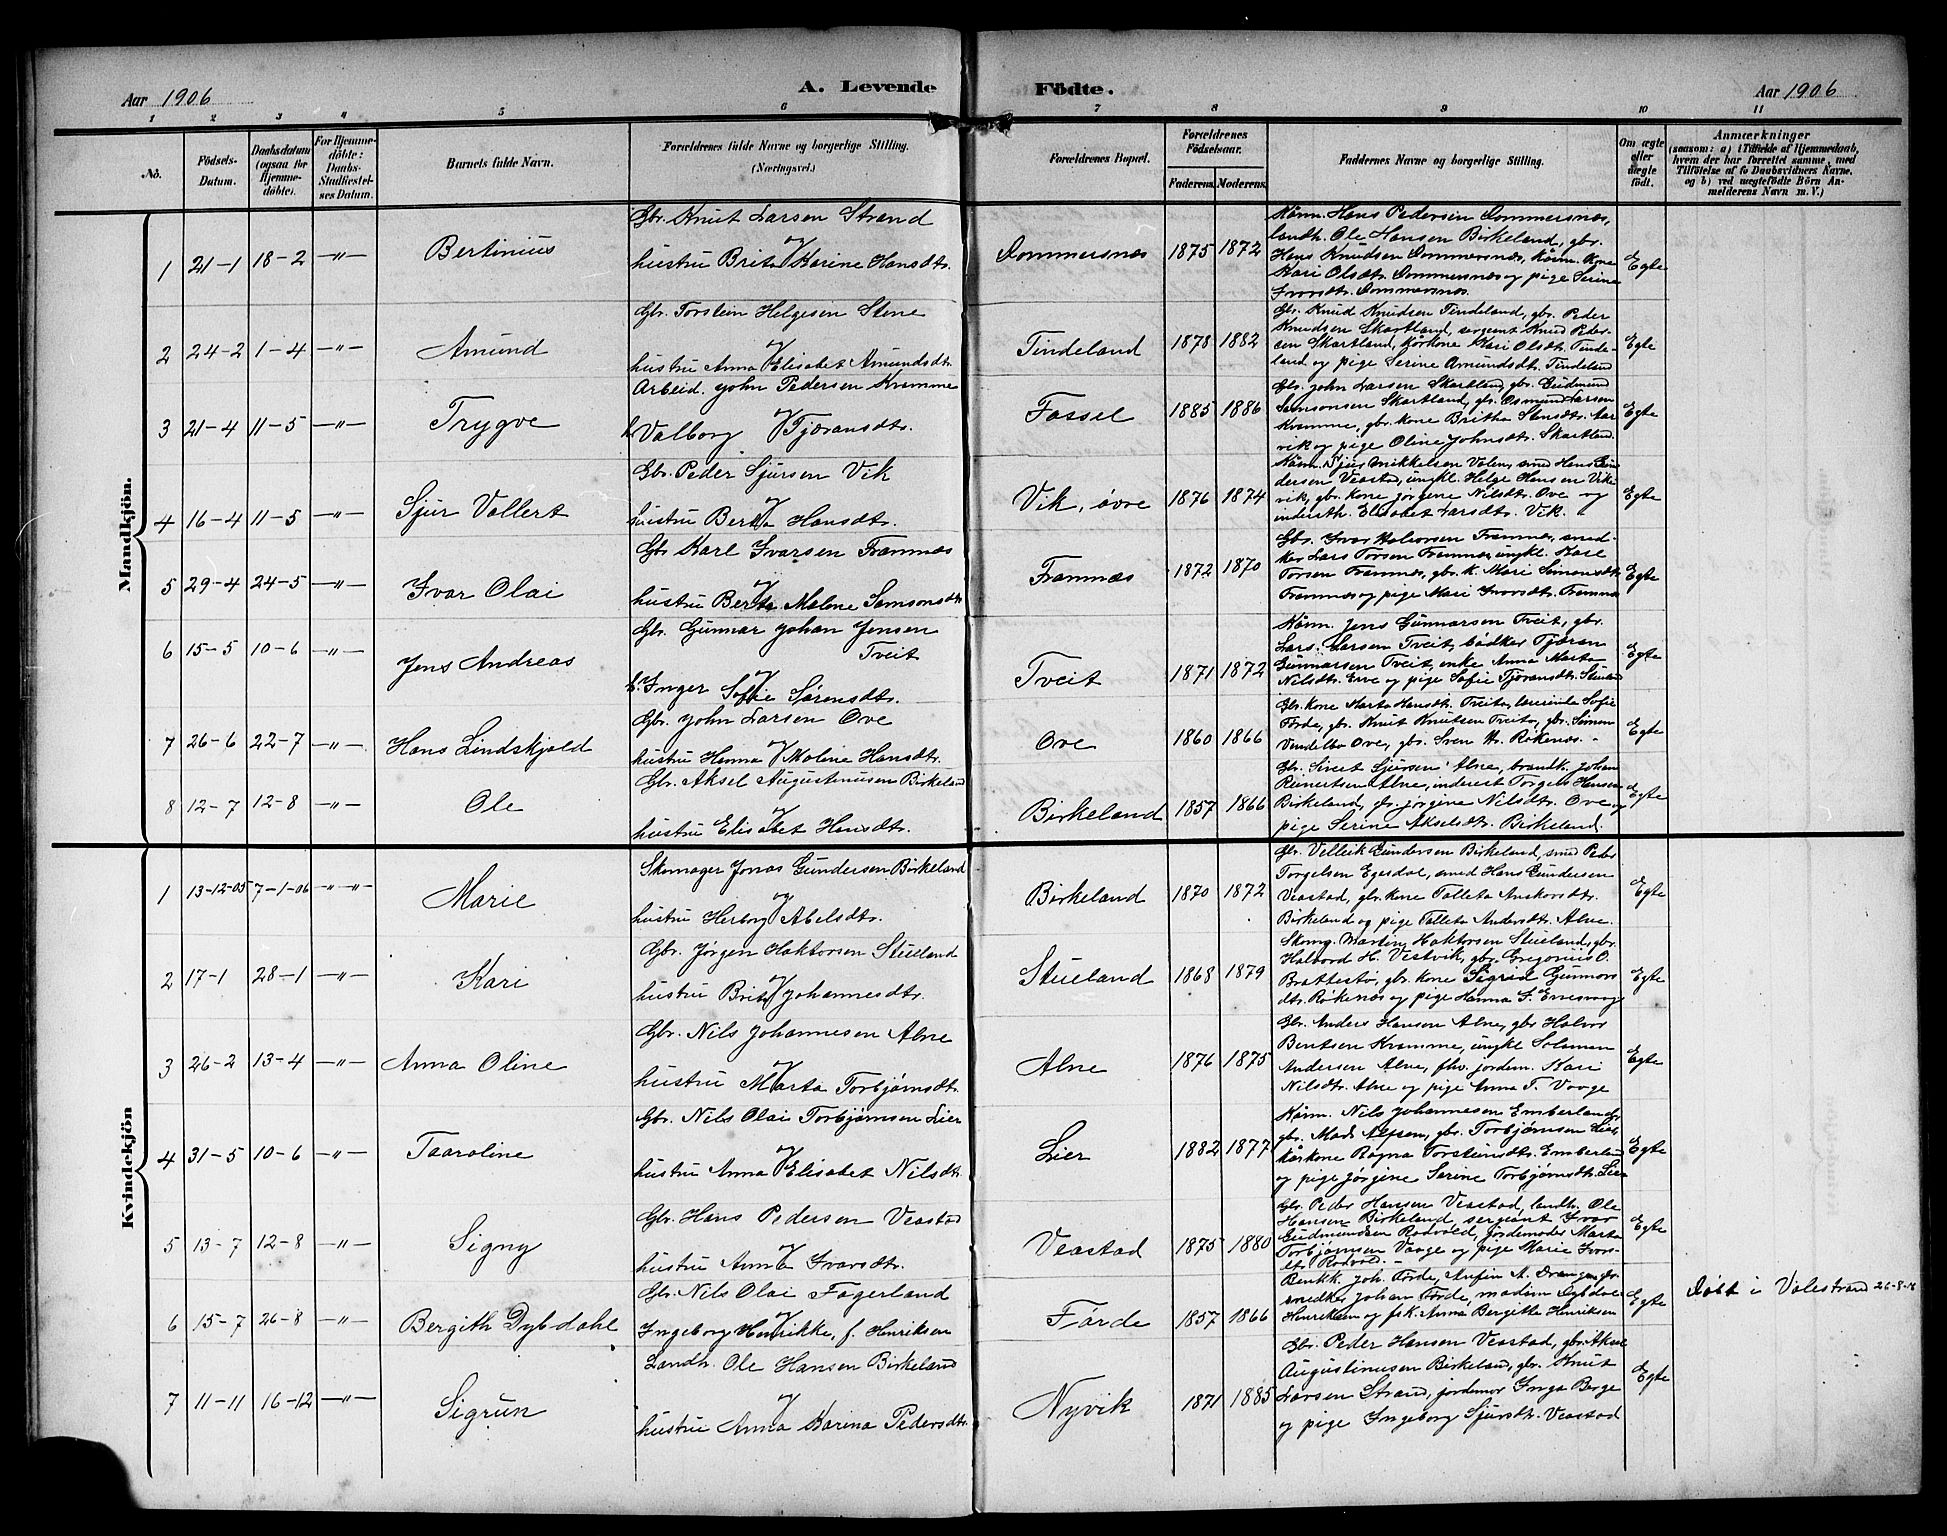 Aar 1906
A. Levende Födte.
Aar 1906
1 2 3 4 5 6 7 8 9 10 11
No.
Födsels-Datum.
Daabsdatum (ogsaa for Hjemme-döbte).
For Hjemme-döbte: Daabs-Stadfæstel-ses Datum.
Barnets fulde Navn.
Forældrenes fulde Navne og borgerlige Stilling. (Næringsvei.)
Forældrenes Bopæl.
Forældrenes Födselsaar.
Faderens. Moderens.
Faddernes Navne og borgerlige Stilling.
Om ægte eller uægte födt.
Anmærkninger
(saasom: a) i Tilfælde af Hjemmedaab, hvem der har forrettet samme, med Tilföielse af to Daabsvidners Navne, og b) ved uægtefödte Börn An-melderens Navn m. V.)
Mandkjön.
1 21-1 18-2 -"- Bertinius
Gbr. Knut Larsen Strand
og
hustru Brita Karine Hansdtr.
Dommersnæs 1875 1872
Kårm. Hans Pedersen Dommersnæs,
landh. Ole Hansen Birkeland, gbr.
Hans Knudsen Dommersnæs, kårm. kone
Kari Olsdtr. Dommersnæs og pige Serine
Ivarsdtr. Dommersnæs.
Egte
2 24-2 1-4 -"- Amund
Gbr. Torstein Helgesen Stene
og
hustru Anna Elisabet Amundsdtr.
Tindeland 1878 1882
Gbr. Knud Knudsen Tindeland, gbr. Peder
Knudsen Skartland, sergent Knud Peder-
sen Skartland, kårkone Kari Olsdtr. Tinde-
land og pige Serine Amundsdtr. Tindeland
Egte
3 21-4 11-5 -"- Trygve
Arbeid. John Pedersen Kramme
og
h. Valborg Tjæransdtr.
Fossel 1885 1886
Gbr. John Larsen Skartland, gbr. Gudmund
Samsonsen Skartland, gbr. Osmund Larsen
Kramme, gbr. kone Britha Stensdtr. Aar-
vik og pige Oline Johnsdtr. Skartland.
Egte
4 16-4 11-5 -"- Sjur Vallert
Gbr. Peder Sjursen Vik
og
hustru Berta Hansdtr.
Vik, øvre 1876 1874
Kårm. Sjur Mikkelsen Valen, smed Hans Gun-
dersen Veastad, ungkl. Helge Hansen Vike-
vik, gbr. kone Jørgine Nilsdtr. Ove og
indersth. Elisabet Larsdtr. Vik.
Egte
5 29-4 24-5 -"- Ivar Olai
Gbr. Karl Ivarsen Framnæs
og
hustru Berta Malene Samsonsdtr.
Framnæs 1872 1870
Gbr. Ivar Halvorsen Framnæs, smed-
ker Lars Torsen Framnæs, ungkl. Karl
Torsen Framnæs, gbr. k. Mari Simonsdtr.
Framnæs og pige Mari Ivarsdtr. Framnæs
Egte
6 15-5 10-6 -"- Jens Andreas
Gbr. Gunnar Johan Jensen
Tveit
og
h. Inger Sofie Sørensdtr.
Tveit 1871 1872
Kårm. Jens Gunnarsen Tveit, gbr.
Lars Larsen Tveit, bødker Tjæran
Gunnarsen Tveit, enke Anna Marta
Nilsdtr. Erve og pige Sofie Tjæransdtr. Stueland
Egte
7 26-6 22-7 -"- Hans Lindskjold
Gbr. John Larsen Ove
og
hustru Hanna Maline Hansdtr.
Ove 1860 1866
Gbr. kone Marta Hansdtr. Tveito, Sofie
Førde, gbr. Knut Knutsen Tveito, gbr. Simon
Vendelbo Ove, gbr. Sven Røkenæs.
Egte
8 12-7 12-8 -"- Ole
Gbr. Aksel Augustinusen Birkeland
og
hustru Elisabet Hansdtr.
Birkeland 1857 1866
Gbr. Sivert Sjursen Alne, brandk. Johan
Reinertsen Alne, inderst Torgels Hansen
Birkeland, gbr. Jørgine Nilsdtr. Ove og
pige Serine Akselsdtr. Birkeland.
Egte
Kvindekjön
1 13-12-05 7-1-06 -"-"- Marie
Skomager Jonas Gundersen Birkeland
og
hustru Herborg Abelsdtr.
Birkeland 1870 1872
Gbr. Velleik Gundersen Birkeland, smed Peder
Torgelsen Egesdal, smed Hans Gundersen
Veastad, gbr. kone Talleta Anskorsdtr.
Birkeland og pige Talleta Andersdtr. Alne.
Egte
2 17-1 28-1 -"- Kari
Gbr. Jørgen Haktorsen Stueland
og
hustru Brita Johannesdtr.
Stueland 1868 1879
Skomg. Martin Haktorsen Stueland, gbr.
Halvord H. Vestvik, gbr. Gregorius O.
Brattestø, gbr. kone Sigrid Gunnars-
dtr. Røkenæs og pige Hanna S. Ernesvaag
Egte
3 26-2 13-4 -"- Anna Oline
Gbr. Nils Johannesen Alne
og
hustru Marta Torbjørnsdtr.
Alne 1876 1875
Gbr. Anders Hansen Alne, gbr Halvor
Bentsen Kramme, ungkl Salomon
Andersen Alne, fhv. jordem. Kari
Nilsdtr. Alne og pige Anna T. Vaage
Egte
4 31-5 10-6 -"- Taaroline
Gbr. Nils Olai Torbjørnsen Lier
og
hustru Anna Elisabet Nilsdtr.
Lier 1882 1877
Kårm. Nils Johannesen Emberland,
gbr. Mads Alfsen, gbr. Torbjørnsen Lier,
kårkone Ragna Torsteinsdtr. Emberland
og pige Jørgine Serine Torbjørnsdtr. Lier
Egte
5 13-7 12-8 -"- Signy
Gbr. Hans Pedersen Veastad
og
hustru Anna Ivarsdtr.
Veastad 1875 1880
Gbr. Peder Hansen Veastad, landh. Ole
Hansen Birkeland, sergeant Ivar
Gudmundsen Rødvold, jordemoder Marta
Torbjørnsen Vaage og pige Marie Ivars-
dtr. Rødvold.
Egte
6 15-7 26-8 -"- Bergith Dybdahl
Gbr. Nils Olai Fagerland
og
Ingeborg Henrikke, f. Henriksen
Førde 1857 1866
Benkk. Joh. Førde, Anfin A. Dranges, gbr.
smedker Johan Førde, madam Dybdal
Henriksen og frk. Anna Bergitta Henriksen
Egte
Døbt i Valestrand 26-8-06
7 11-11 16-12 -"- Sigrun
Landh. Ole Hansen Birkeland
og
hustru Anna Karina Pedersdtr.
Nyvik 1871 1885
Gbr. Peder Hansen Veastad, gbr. Aksel
Augustinusen Birkeland, gbr. Knut
Larsen Strand, jordemor Inga Berge
og pige Ingeborg Sjursdtr. Veastad
Egte